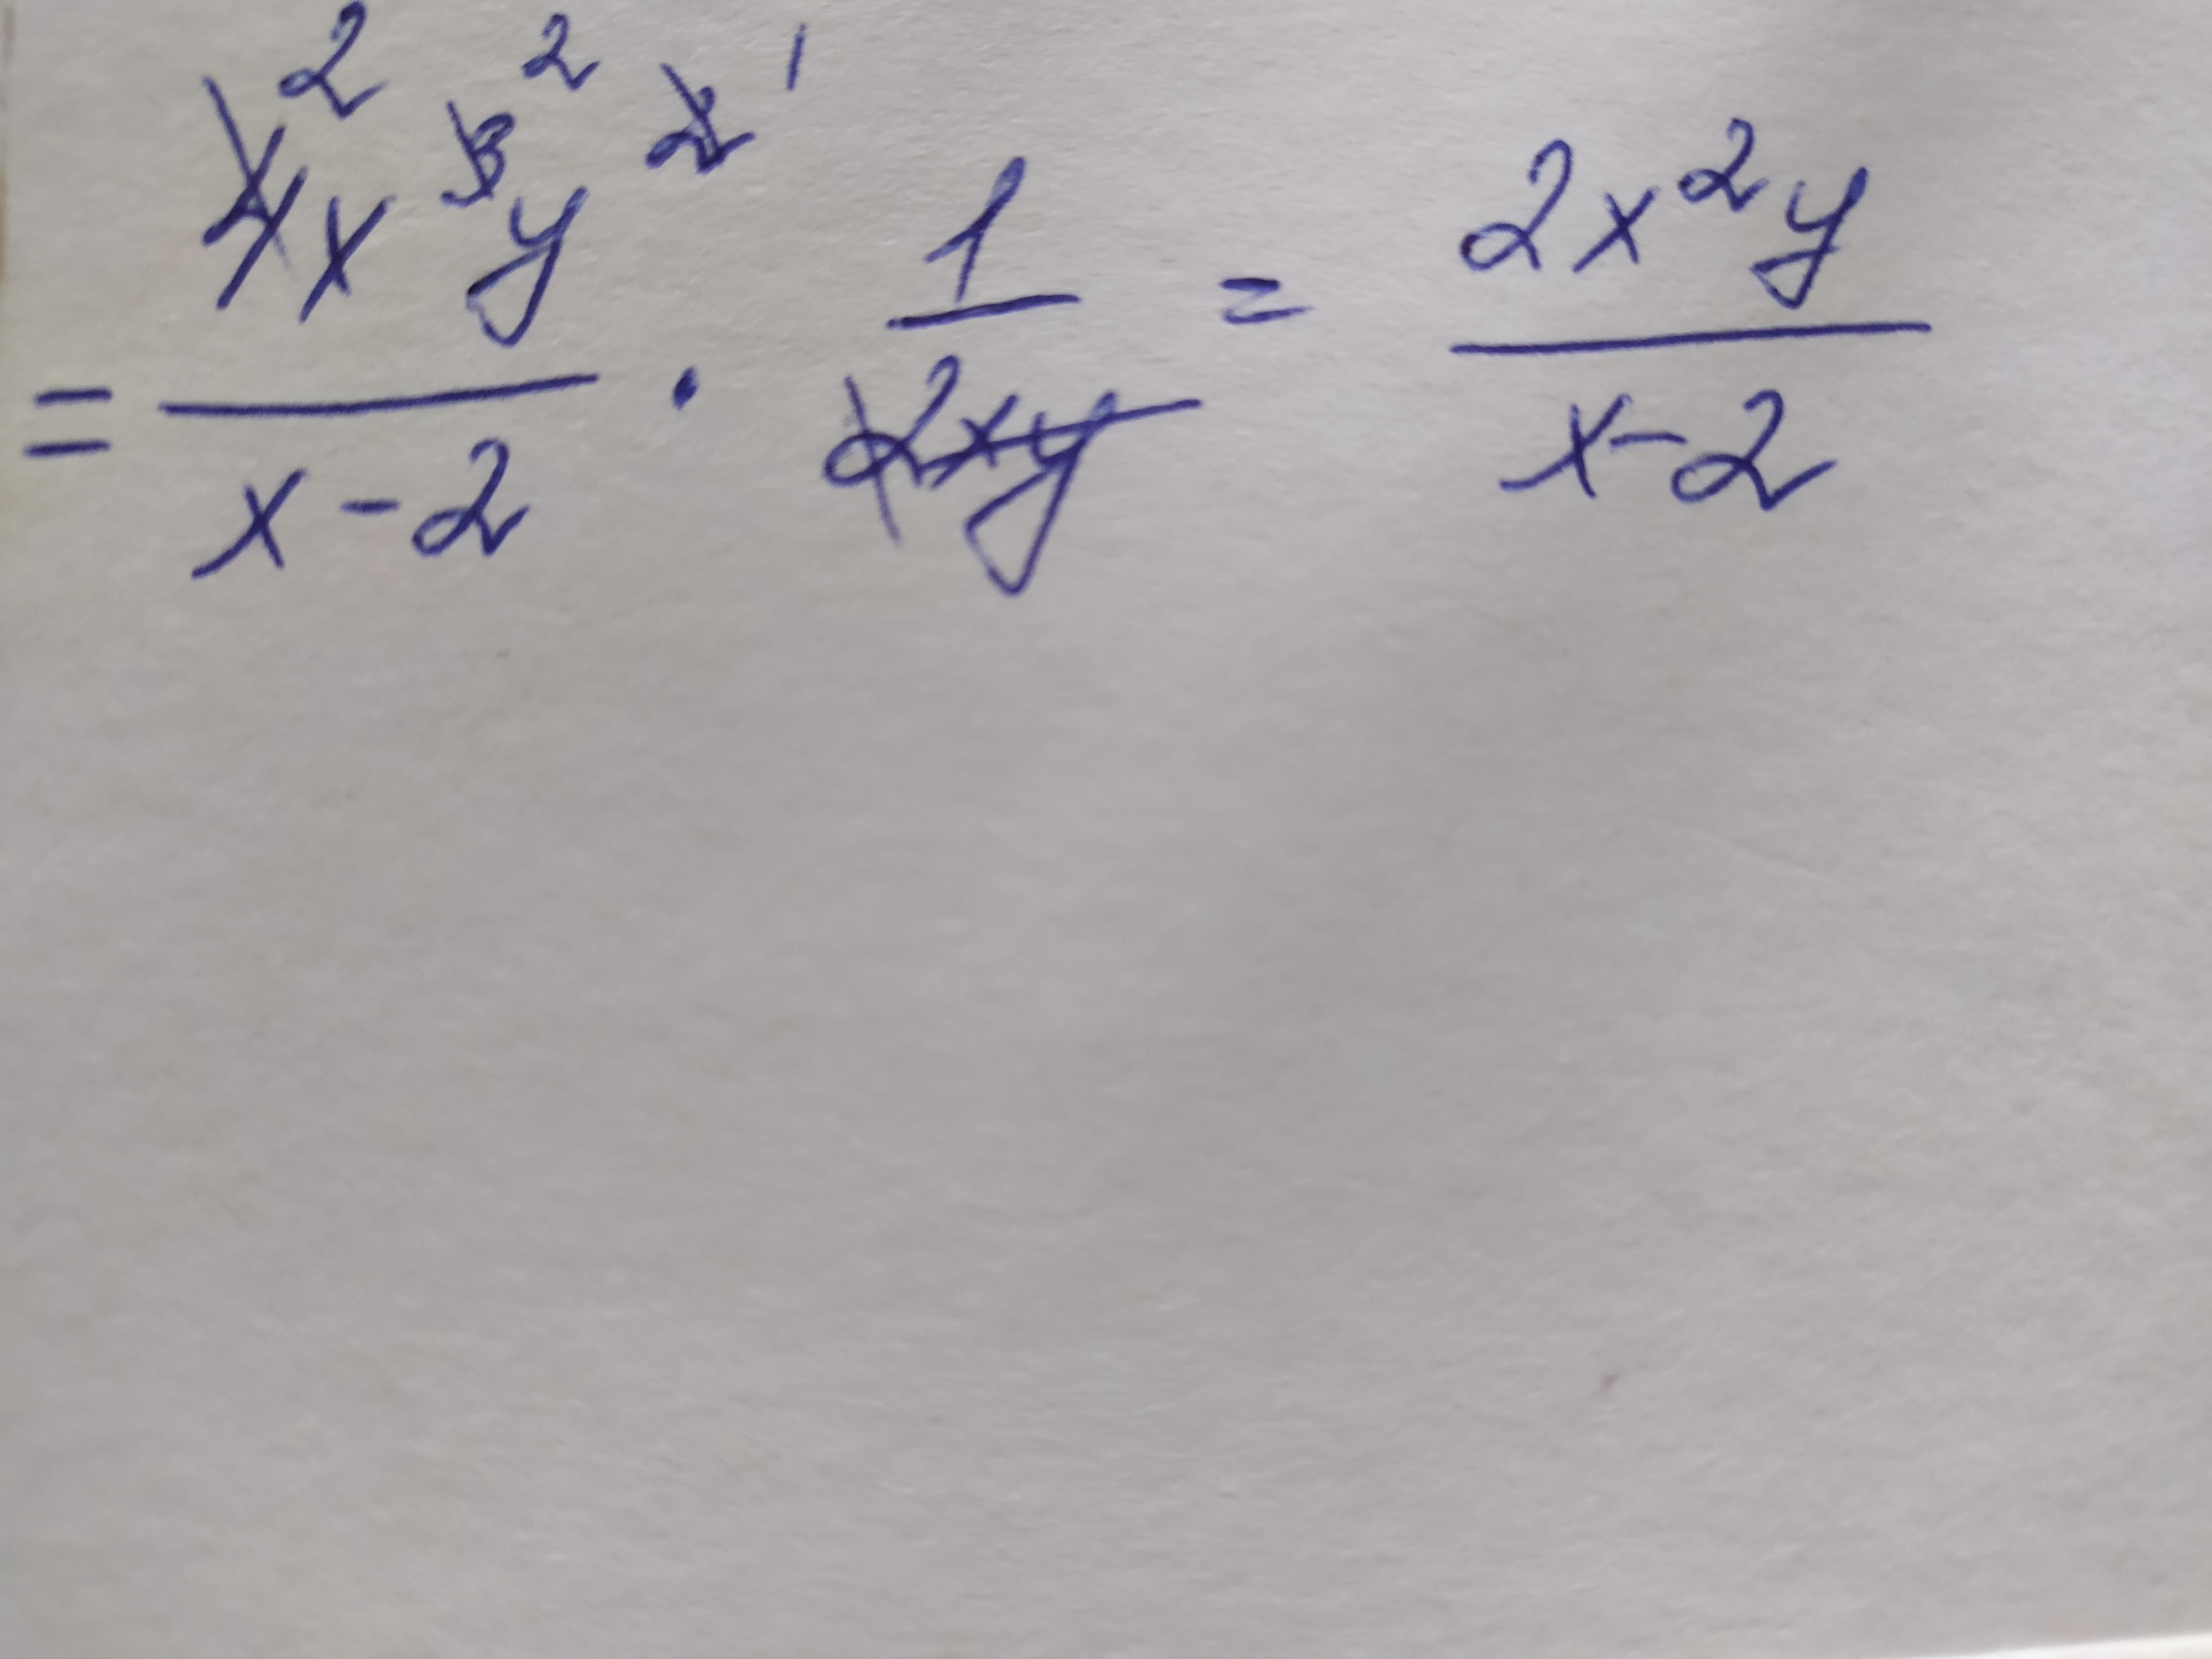 = \frac{\cancel{4}^{2} x^{\cancel{3}^{2}} y^{\cancel{2}^{1}}}{x-2} \cdot \frac{1}{\cancel{2xy}} = \frac{2x^{2}y}{x-2}